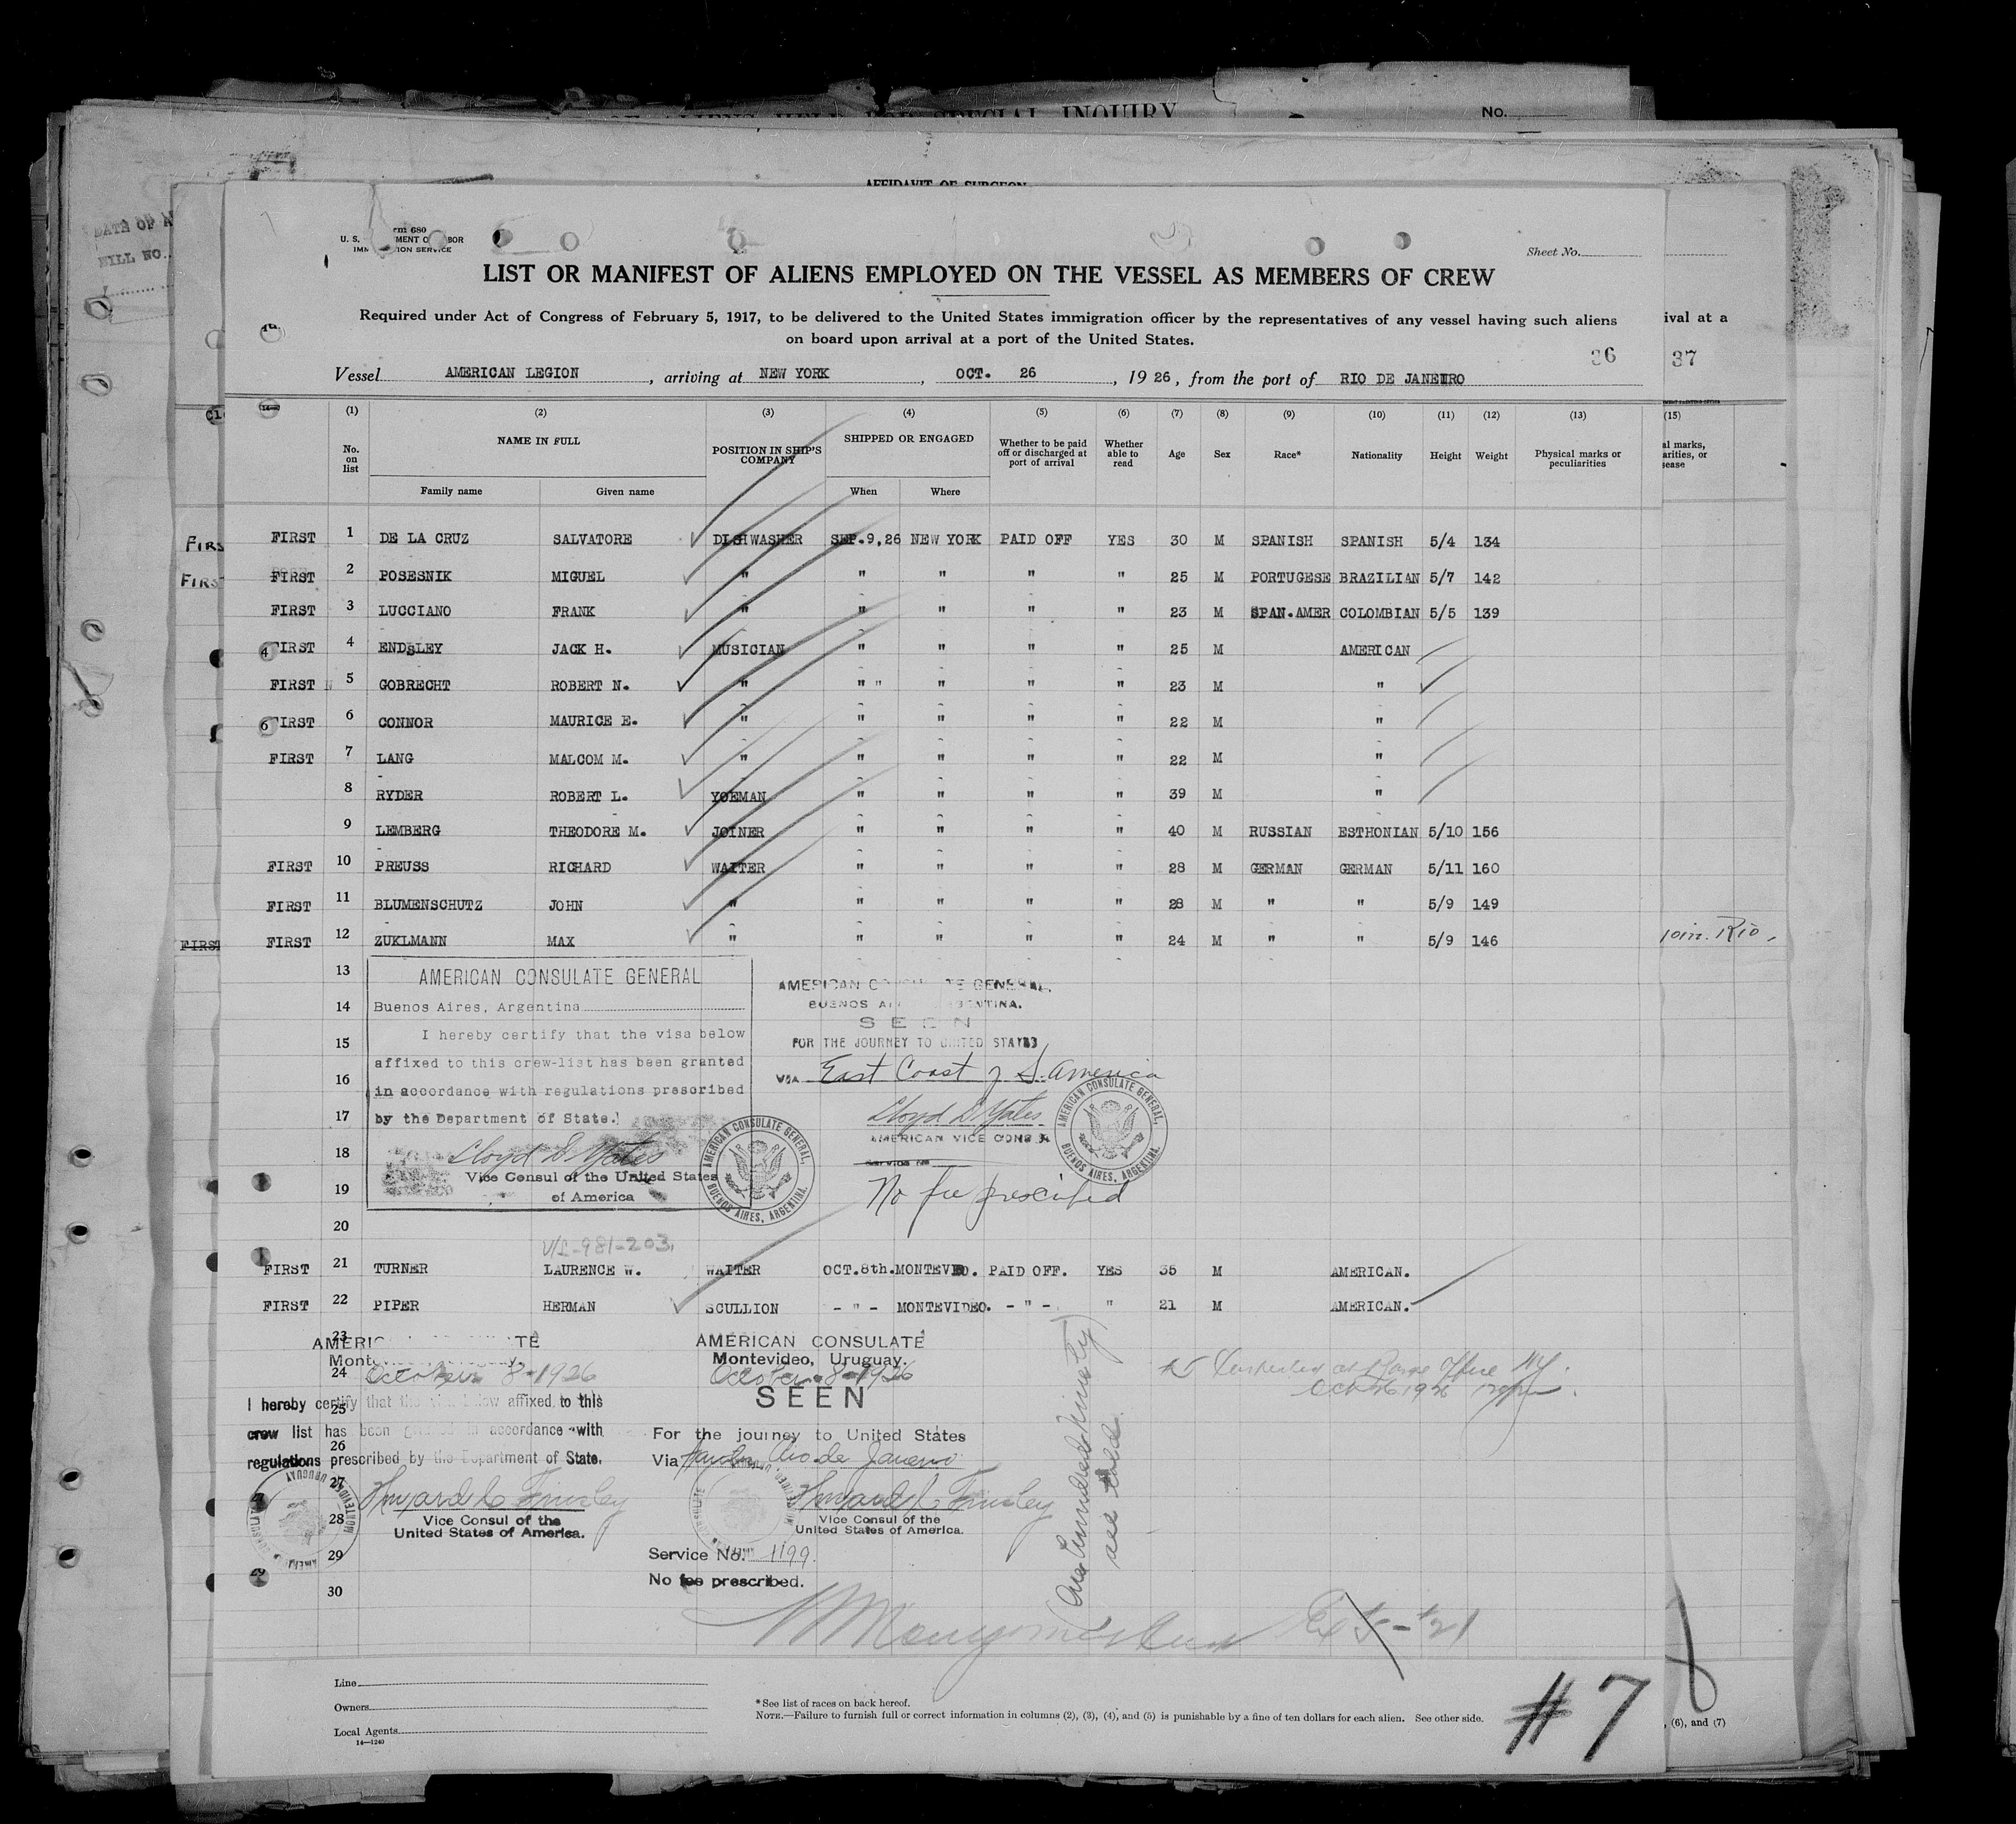 OF ALIENS HELD FOR SPECIAL INQUIRY
No.
AFFIDAVIT OF SURGEON
DATE OF A
Sheet No.
LIST OR MANIFEST OF ALIENS EMPLOYED ON THE VESSEL AS MEMBERS OF CREW
Required under Act of Congress of February 5, 1917, to be delivered to the United States immigration officer by the representatives of any vessel having such aliens
on board upon arrival at a port of the United States.
ival at a
36 37
Vessel AMERICAN LEGION , arriving at NEW YORK , OCT. 26 , 1926, from the port of RIO DE JANEIRO
(1) (2) (3) (4) (5) (6) (7) (8) (9) (10) (11) (12) (13) (15)
No. on list NAME IN FULL POSITION IN SHIP'S COMPANY SHIPPED OR ENGAGED Whether to be paid off or discharged at port of arrival Whether able to read Age Sex Race* Nationality Height Weight Physical marks or peculiarities
Family name Given name When Where
FIRST 1 DE LA CRUZ SALVATORE DISHWASHER SEP.9,26 NEW YORK PAID OFF YES 30 M SPANISH SPANISH 5/4 134
FIRST 2 POSESNIK MIGUEL " " " " " 25 M PORTUGESE BRAZILIAN 5/7 142
FIRST 3 LUCCIANO FRANK " " " " " 23 M SPAN.AMER COLOMBIAN 5/5 139
FIRST 4 ENDSLEY JACK H. MUSICIAN " " " " 25 M AMERICAN
FIRST 5 GOBRECHT ROBERT N. " " " " " " 23 M "
FIRST 6 CONNOR MAURICE E. " " " " " 22 M "
FIRST 7 LANG MALCOM M. " " " " " 22 M "
8 RYDER ROBERT L. YOEMAN " " " " 39 M "
9 LEMBERG THEODORE M. JOINER " " " " 40 M RUSSIAN ESTHONIAN 5/10 156
FIRST 10 PREUSS RICHARD WAITER " " " " 28 M GERMAN GERMAN 5/11 160
FIRST 11 BLUMENSCHUTZ JOHN " " " " " 28 M " " 5/9 149
FIRST FIRST 12 ZUKLMANN MAX " " " " " 24 M " " 5/9 146 Rio
13 AMERICAN CONSULATE GENERAL
14 Buenos Aires, Argentina
15 I hereby certify that the visa below
affixed to this crew-list has been granted
16 in accordance with regulations prescribed
17 by the Department of State.
18 Lloyd D. Yates
Vice Consul of the United States
19 of America
AMERICAN CONSULATE GENERAL, BUENOS AIRES, ARGENTINA.
AMERICAN CONSULATE GENERAL.
BUENOS AIRES ARGENTINA.
SEEN
FOR THE JOURNEY TO UNITED STATES
VIA East Coast of S. America
Lloyd D. Yates.
AMERICAN VICE CONSUL
Service No
No fee prescribed
AMERICAN CONSULATE GENERAL, BUENOS AIRES, ARGENTINA.
20
V/L-981-203.
FIRST 21 TURNER LAURENCE W. WAITER OCT.8th. MONTEVEO. PAID OFF. YES 35 M AMERICAN.
FIRST 22 PIPER HERMAN SCULLION - " - MONTEVIDEO. - " - " 21 M AMERICAN.
23
24
25
26
27
28
29
30
October 8-1926
I hereby certify that the visa below affixed to this
crew list has been granted in accordance with
regulations prescribed by the Department of State.
Vice Consul of the
United States of America.
AMERICAN CONSULATE
Montevideo, Uruguay.
October 8-1926
SEEN
For the journey to United States
Via Santos Rio de Janeiro
Vice Consul of the
United States of America.
Service No. 1199.
No fee prescribed.
at Barge Office NY.
Oct 26 1926
Line
Owners
Local Agents
14—1240
*See list of races on back hereof.
NOTE.—Failure to furnish full or correct information in columns (2), (3), (4), and (5) is punishable by a fine of ten dollars for each alien. See other side.
, (6), and (7)
# 7